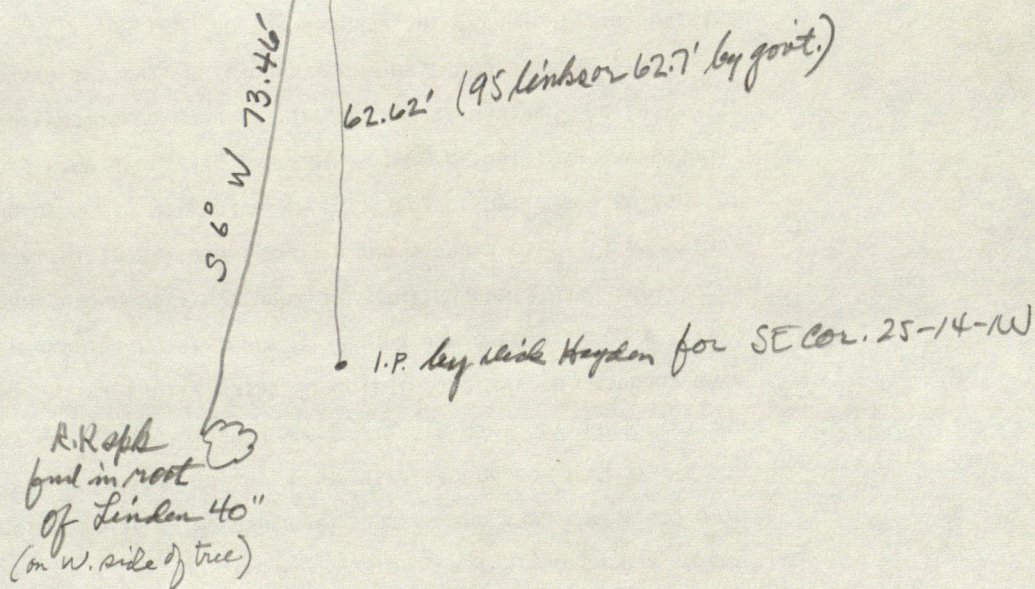 S 6° W 73.46'
62.62' (95 links or 62.7' by govt.)
I.P. by Dick Hayden for SE Cor. 25-14-1W
R.R spk
fnd in root
of Linden 40"
(on W. side of tree)